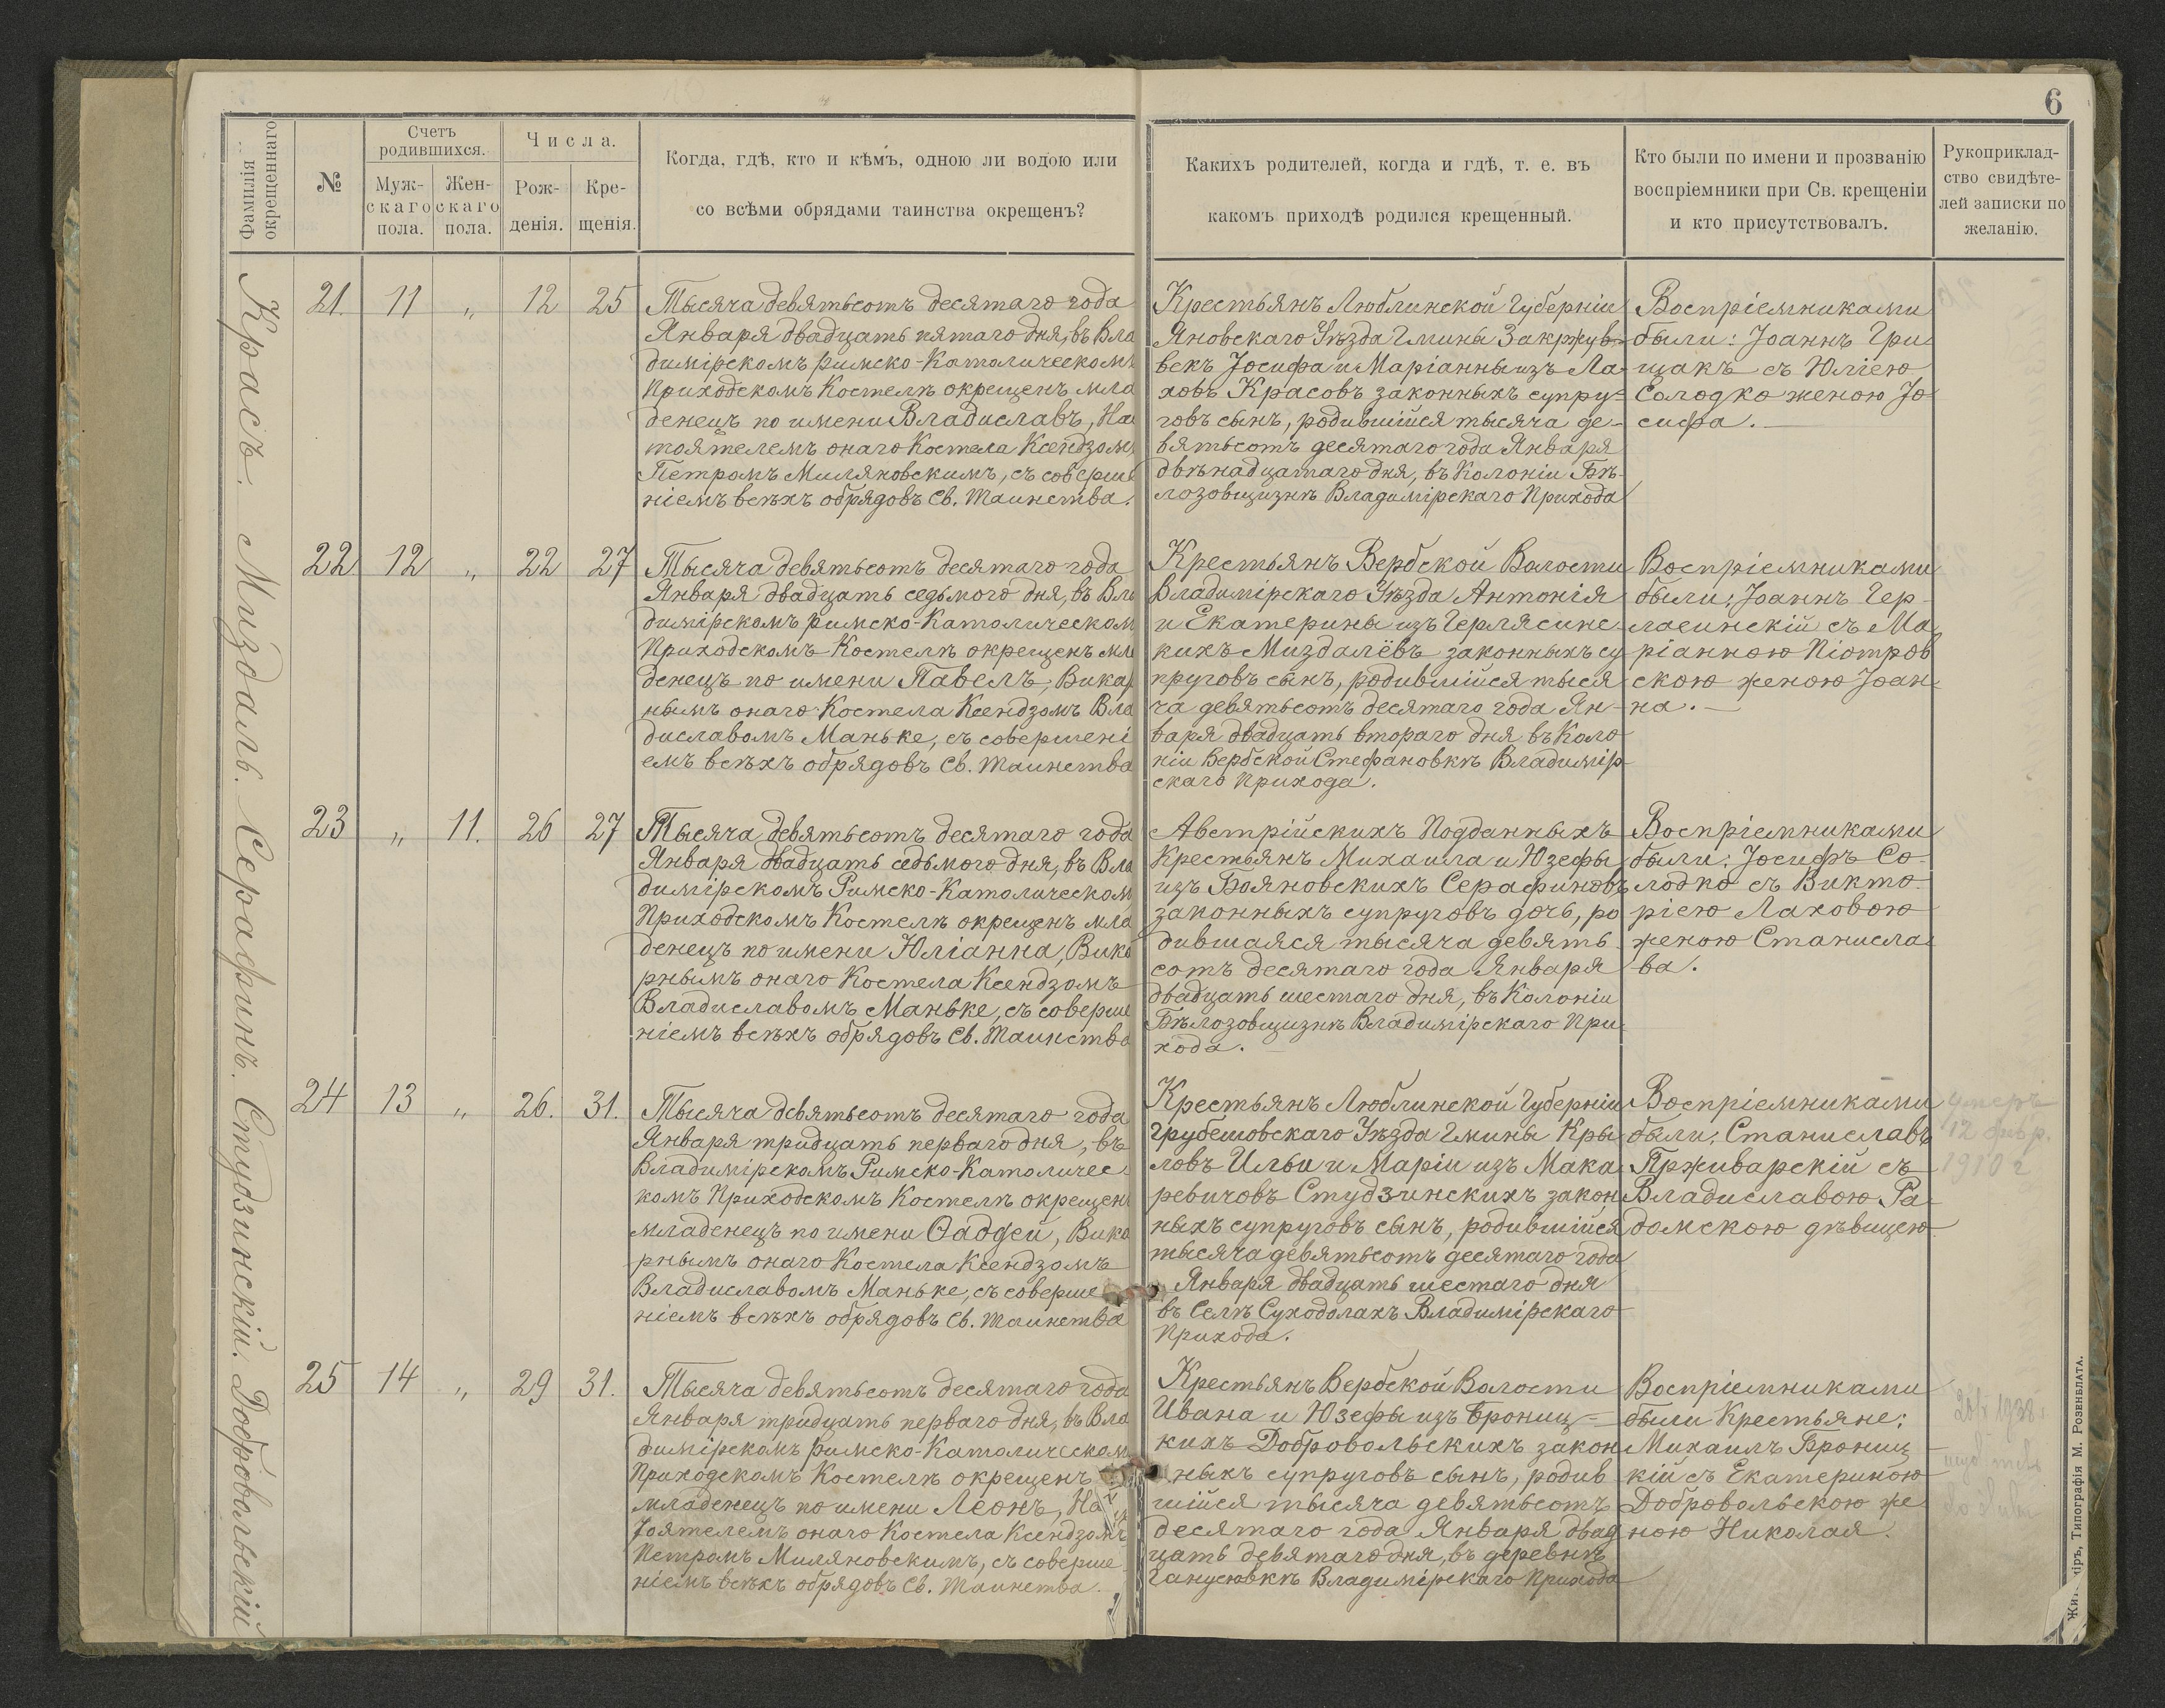 6
Фамилія окрещеннаго
№
Счетъ родившихся.
Муж-
скаго
пола.
Жен-
скаго
пола.
Числа.
Рож-
денія.
Кре-
щенія.
Когда, гдѣ, кто и кѣмъ, одною ли водою или
со всѣми обрядами таинства окрещенъ?
Какихъ родителей, когда и гдѣ, т. е. въ
какомъ приходѣ родился крещенный.
Кто были по имени и прозванію
воспріемники при Св. крещеніи
и кто присутствовалъ.
Рукоприклад-
ство свидѣте-
лей записки по
желанію.
Красъ.
21. 11 „ 12 25
Тысяча девятьсотъ десятаго года
Января двадцать пятаго дня, въ Вла
димірскомъ римско-Католическомъ
Приходскомъ Костелѣ окрещенъ мла
денецъ по имени Владиславъ, Нас
тоятелемъ онаго Костела Ксендзомъ
Петромъ Миляновскимъ, съ соверше
ніемъ всѣхъ обрядовъ Св. Таинства.
Крестьянъ Люблинской Губерніи
Яновскаго Уѣзда Гмины Закржув-
векъ Іосифа и Маріанны изъ Ла-
ховъ Красовъ законныхъ супру-
говъ сынъ, родившійся тысяча де-
вятьсотъ десятаго года Января
двѣнадцатаго дня, въ Колоніи Бѣ-
лозовщизнѣ Владимірскаго Прихода
Воспріемниками
были: Іоаннъ Гри
щакъ съ Юліею
Солодко женою Іо
сифа.—
Миздаль.
22 12 „ 22 27
Тысяча девятьсотъ десятаго года
Января двадцать седьмого дня, въ Вла
димірскомъ римско-Католическом
Приходскомъ Костелѣ окрещенъ мла
денецъ по имени Павелъ, Викар
нымъ онаго Костела Ксендзомъ Вла
диславомъ Маньке, съ совершені
емъ всѣхъ обрядовъ Св. Таинства
Крестьянъ Вербской Волости
Владимірскаго Уѣзда Антонія
и Екатерины изъ Герлясинс
кихъ Миздалёвъ законныхъ су
пруговъ сынъ, родившійся тыся
ча девятьсотъ десятаго года Ян-
варя двадцать втораго дня въ Коло
ніи Вербской Стефановкѣ Владимір
скаго Прихода.
Воспріемниками
были: Іоаннъ Гер-
ласинскій съ Ма
ріанною Піотров
скою женою Іоан
на.—
Серафинъ.
23 „ 11. 26 27
Тысяча девятьсотъ десятаго года
Января двадцать седьмого дня, въ Вла
димірскомъ Римско-Католическом
Приходскомъ Костелѣ окрещенъ мла
денецъ по имени Юліанна, Вика
рнымъ онаго Костела Ксендзомъ
Владиславомъ Маньке, съ соверше
ніемъ всѣхъ обрядовъ Св. Таинства
Австрійскихъ Подданныхъ
Крестьянъ Михаила и Юзефы
изъ Бояновскихъ Серафиновъ
законныхъ супруговъ дочь, ро
дившаяся тысяча девять
сотъ десятаго года Января
двадцать шестаго дня, въ Колоніи
Бѣлозовщизнѣ Владимірскаго При
хода.—
Воспріемниками
были: Іосифъ Со-
лодко съ Викто
ріею Лаховою
женою Станисла
ва.
Студзинскій.
24 13 „ 26. 31.
Тысяча девятьсотъ десятаго года
Января тридцать перваго дня, въ
Владимірскомъ Римско-Католичес
комъ Приходскомъ Костелѣ окрещенъ
младенецъ по имени Ѳаддей, Вика
рнымъ онаго Костела Ксендзомъ
Владиславомъ Маньке, съ соверше
ніемъ всѣхъ обрядовъ Св. Таинства
Крестьянъ Люблинской Губерніи
Грубешовскаго Уѣзда Гмины Кры
ловъ Ильи и Маріи изъ Мака
ревичовъ Студзинскихъ закон
ныхъ супруговъ сынъ, родившійся
тысяча девятьсотъ десятаго года
Января двадцать шестаго дня
въ Селѣ Суходолахъ Владимірскаго
Прихода.
Воспріемниками
были: Станиславъ
Прживарскій съ
Владиславою Ра
домскою дѣвицею
умеръ
12
1910 г
Добровольскій
25 14 „ 29 31.
Тысяча девятьсотъ десятаго года
Января тридцать перваго дня, въ Вла
димірскомъ римско-Католическом
Приходскомъ Костелѣ окрещенъ
младенецъ по имени Леонъ, Нас
тоятелемъ онаго Костела Ксендзомъ
Петромъ Миляновскимъ, съ соверше
ніемъ всѣхъ обрядовъ Св. Таинства.
Крестьянъ Вербской Волости
Ивана и Юзефы изъ Брониц-
кихъ Добровольскихъ закон
ныхъ супруговъ сынъ, родив
шійся тысяча девятьсотъ
десятаго года Января двад
цать девятаго дня, въ деревнѣ
Ганусювкѣ Владимірскаго Прихода
Воспріемниками
были Крестьяне:
Михаилъ Брониц-
кій съ Екатериною
Добровольскою же
ною Николая.
1938
Типографія М. Розенблата.